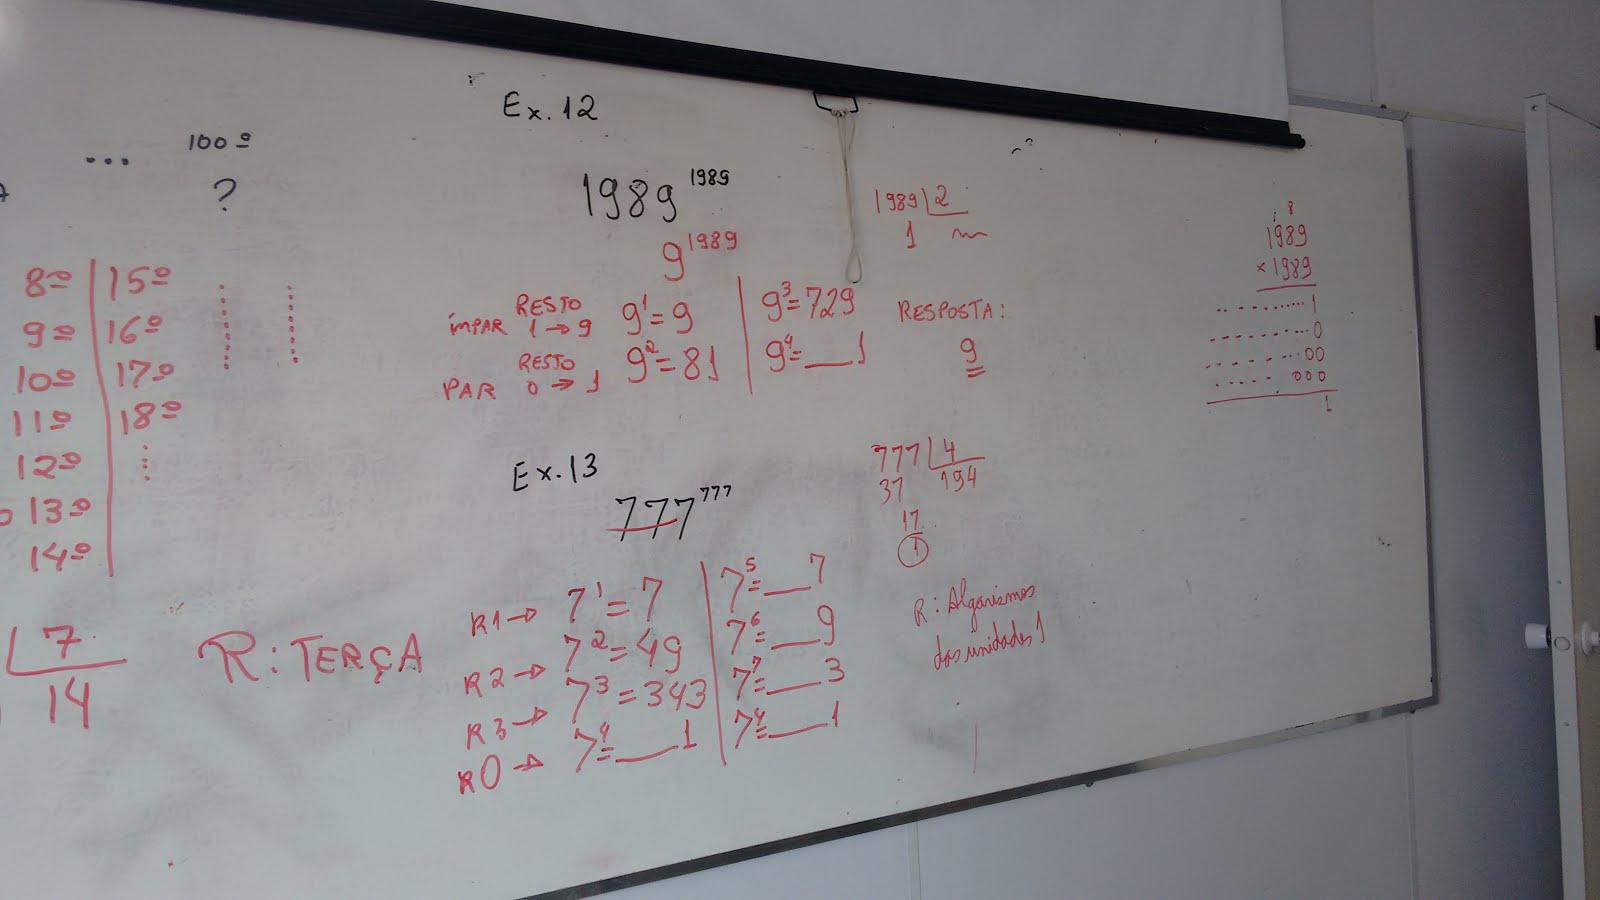 ... 100º
?
8º 15º
9º 16º
10º 17º
11º 18º
12º
13º
14º
7
14
R: TERÇA
Ex. 12
1989^1989
9^1989
ÍMPAR RESTO 1 → 9
PAR RESTO 0 → 1
9^1 = 9
9^2 = 81
9^3 = 729
9^4 = ___1
1989 | 2
1
RESPOSTA:
9
8
1989
× 1989
..........1
..........0
........00
......000
1
Ex. 13
777^777
R1 → 7^1 = 7
R2 → 7^2 = 49
R3 → 7^3 = 343
R0 → 7^4 = ___1
7^5 = ___7
7^6 = ___9
7^7 = ___3
7^4 = ___1
777 | 4
37 194
17
1
R: Algarismos
das unidades 1